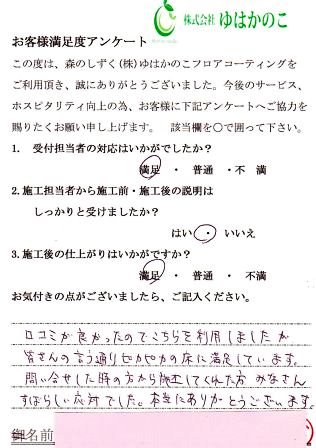 株式会社 ゆはかのこ
お客様満足度アンケート
この度は、森のしずく(株)ゆはかのこフロアコーティングを
ご利用頂き、誠にありがとうございました。今後のサービス、
ホスピタリティ向上の為、お客様に下記アンケートへご協力を
賜りたくお願い申し上げます。 該当欄を○で囲って下さい。
1. 受付担当者の対応はいかがでしたか？
満足 ・ 普通 ・不 満
2.施工担当者から施工前・施工後の説明は
しっかりと受けましたか？
はい ・ いいえ
3.施工後の仕上がりはいかがですか？
満足 ・ 普通 ・ 不満
お気付きの点がございましたら、ご記入ください。
口コミが良かったのでこちらを利用しましたが
皆さんの言う通りピカピカの床に満足しています。
問い合せした時の方から施工してくれた方 みなさん
すばらしい応対でした。本当にありがとうございます。
御名前